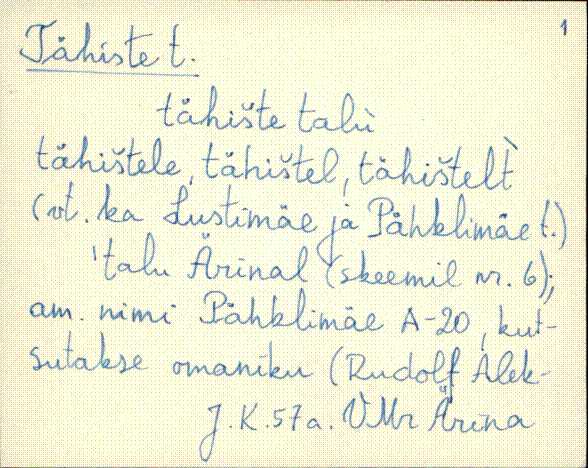 1
Tähiste t.
tähište talù
tähištele, tähištel, tähištelt̀
(vt. ka Lustimäe ja Pähklimäe t.)
'talu Ärinal (skeemil nr. 6);
am. nimi Pähklimäe A-20, kut-
sutakse omaniku (Rudolf Alek-
J.K. 57 a. VMr Ärina